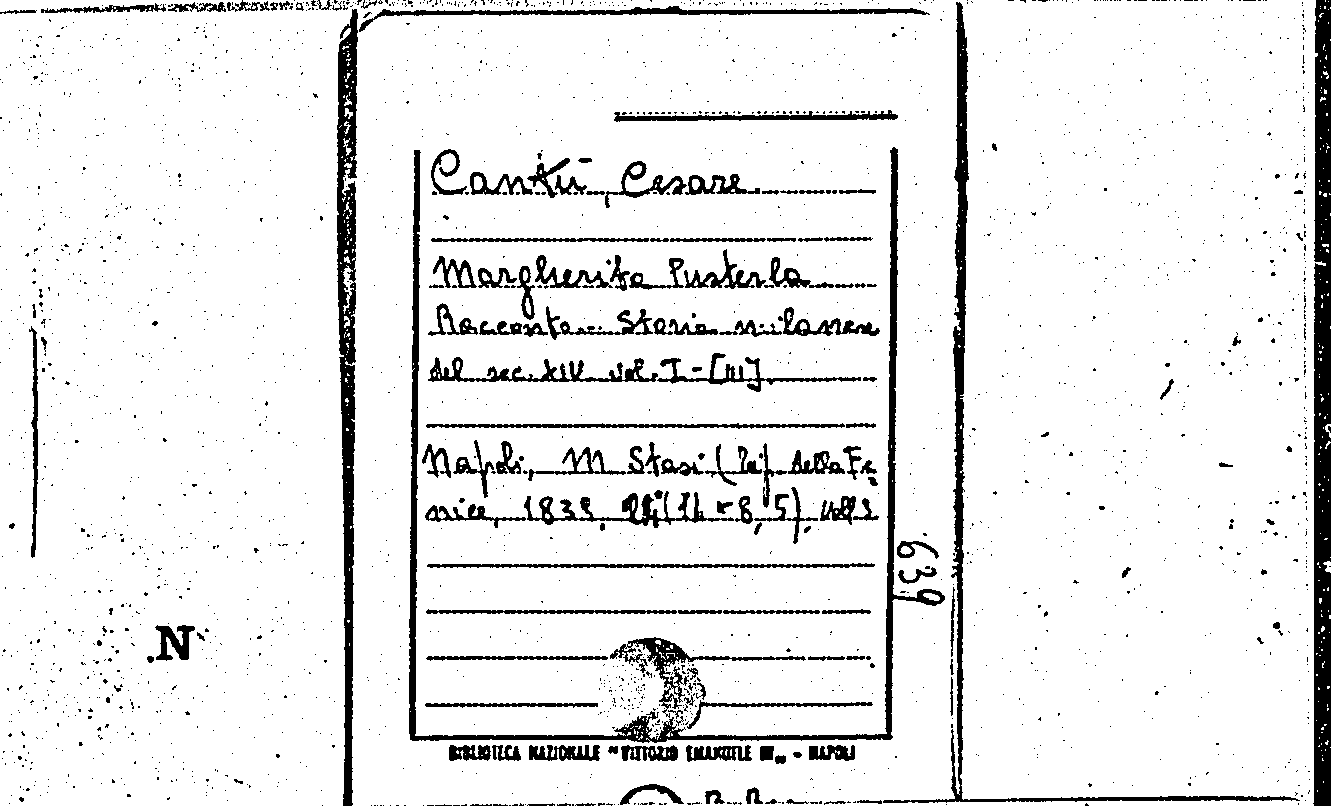 Cantù, Cesare.
Margherita Pusterla
Racconto. Storia milanese
del sec. XIV vol. I-[III].
Napoli, M Stasi (Tip. della Fe
nice, 1839, 24° (14 x 8,5). voll 3
639
N
BIBLIOTECA NAZIONALE "VITTORIO EMANUELE III„ - NAPOLI